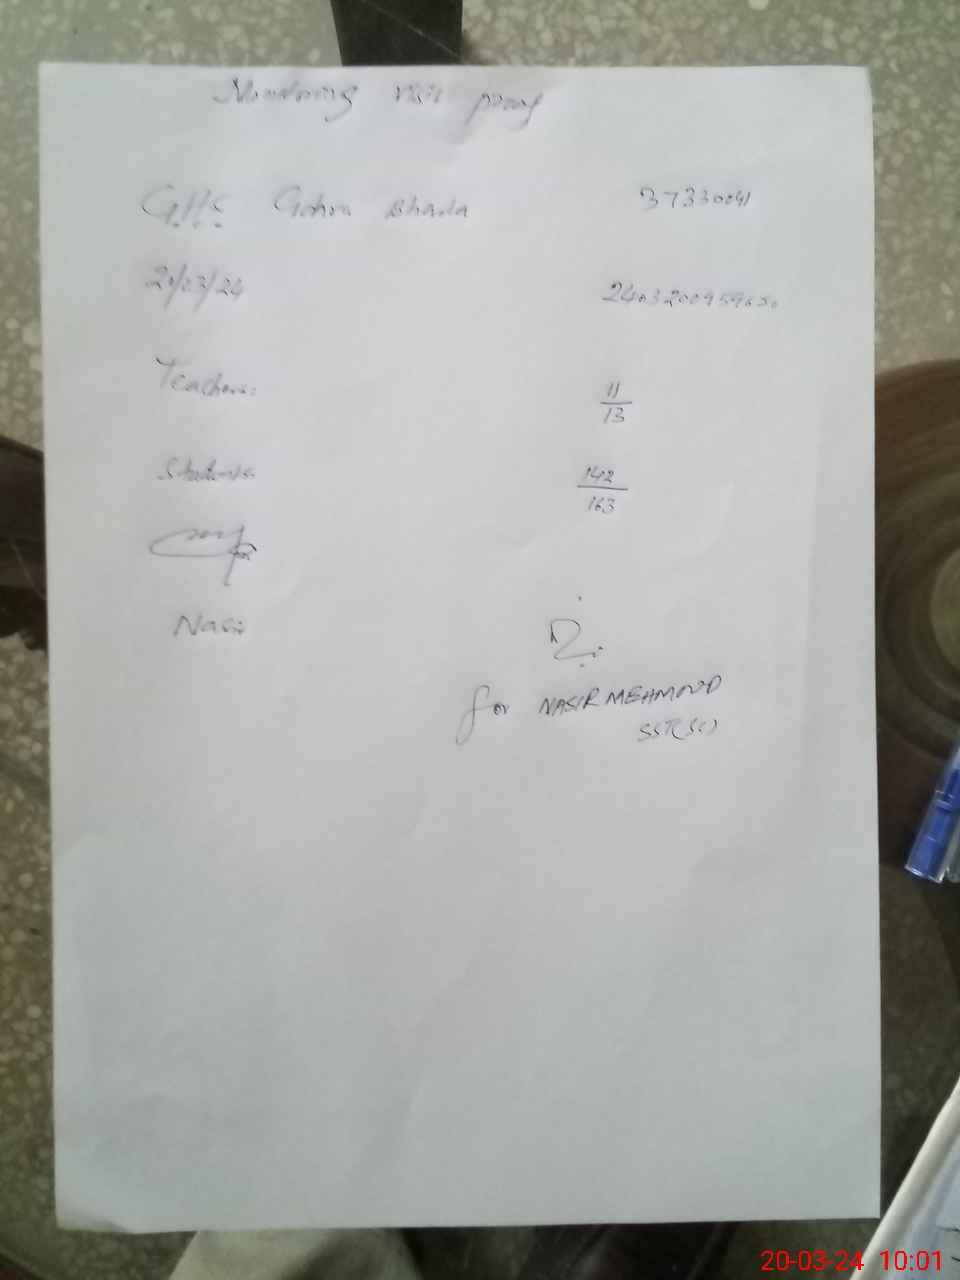 Monitoring visit proof
G.H.S Gohra Bhada 37330041
20/03/24 2403200959050
Teachers: 11/13
Students: 142/163
Nasir
for NASIR MEHMOOD
SST(SC)
20-03-24 10:01